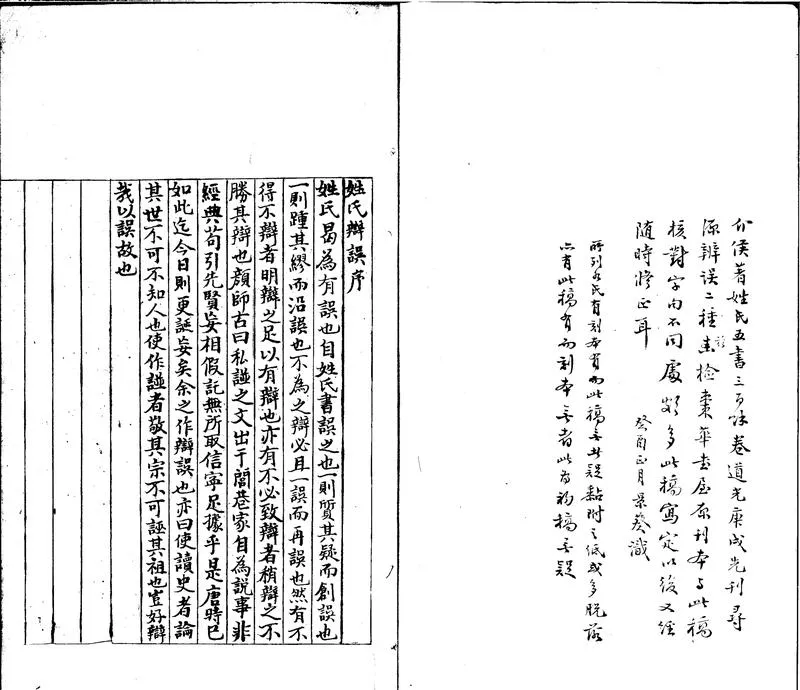 介侯著姓氏五書三百餘卷道光庚戌先刊尋
源辨誤二種茲檢棗華書屋原刊本與此稿
核對字句不同處頗多此稿寫定以後又經
隨時修正耳
癸酉正月景葵識
所列各氏有刻本有而此稿無者疑黏附之紙或多脫落
亦有此稿有而刻本無者此為初稿無疑
姓氏辯誤序
姓氏曷為有誤也自姓氏書誤之也一則質其疑而創誤也
一則踵其繆而沿誤也不為之辯必且一誤而再誤也然有不
得不辯者明辯之足以有辯也亦有不必致辯者稍辯之不
勝其辯也顏師古曰私譜之文出于閭巷家自為說事非
經典苟引先賢妄相假託無所取信寧足據乎是唐時已
如此迄今日則更誣妄矣余之作辯誤也亦曰使讀史者論
其世不可不知人也使作譜者敬其宗不可誣其祖也豈好辯
哉以誤故也